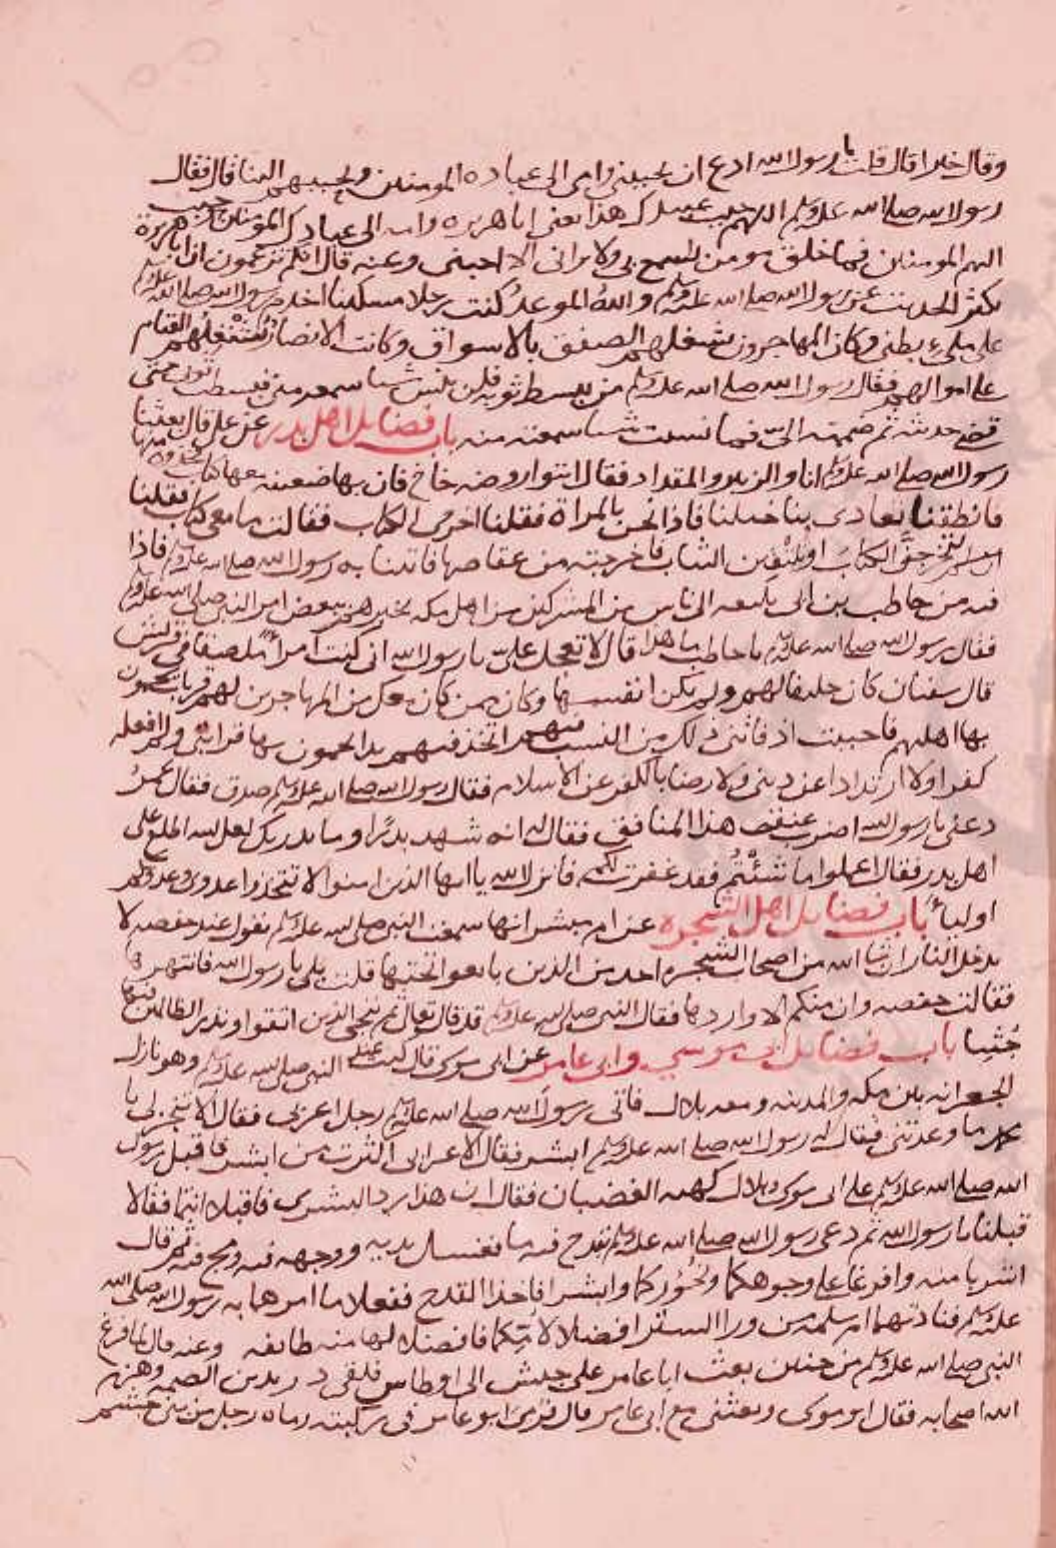 وقال خيرا قال قلت يا رسول الله ادع ان يحببني وامي الى عباده المومنين ويحببهم الينا قال فقال
رسول الله صلى الله عليه وسلم اللهم حبب عبيدك هذا يعني ابا هريره وامه الى عبادك المومنين وحبب
اليهم المومنين فما خلق مومن يسمع بي ولا يراني الا احبني وعنه قال انكم تزعمون ان ابا هريرة
يكثر الحديث عن رسول الله صلى الله عليه وسلم والله الموعد كنت رجلا مسكينا اخدم رسول الله صلى الله عليه وسلم
على ملئ بطني وكان المهاجرون يشغلهم الصفق بالاسواق وكانت الانصار يشغلهم القيام
على اموالهم فقال رسول الله صلى الله عليه وسلم من يبسط ثوبه فلن ينس شيا سمعه مني فبسطت ثوبي حتى
قضى حديثه ثم ضممته الي فما نسيت شيا سمعته منه باب فضايل اهل بدر عن علي قال بعثنا
رسول الله صلى الله عليه وسلم انا والزبير والمقداد فقال ائتوا روضه خاخ فان بها ضعينه معها كتاب فخذوه منها
فانطقنا تعادى بنا خيلنا فاذا نحن بالمراة فقلنا اخرجي الكتاب فقالت ما معي كتاب فقلنا
لتخرجن الكتاب او لتلقين الثياب فاخرجته من عقاصها فاتينا به رسول الله صلى الله عليه وسلم فاذا
فيه من حاطب بن ابي بلتعه الى ناس من المشركين من اهل مكه يخبرهم ببعض امر النبي صلى الله عليه وسلم
فقال رسول الله صلى الله عليه وسلم يا حاطب ما هذا قال لا تعجل علي يا رسول الله اني كنت امرأ ملصقا في قريش
قال سفيان كان حليفا لهم ولم يكن من انفسها وكان ممن كان معك من المهاجرين لهم قرابات يحمون
بها اهليهم فاحببت اذ فاتني ذلك من النسب فيهم ان اتخذ فيهم يدا يحمون بها قرابتي ولم افعله
كفرا ولا ارتدادا عن ديني ولا رضا بالكفر عن الاسلام فقال رسول الله صلى الله عليه وسلم صدق فقال عمر
دعني يا رسول الله اضرب عنق هذا المنافق فقال له انه شهد بدرا وما يدريك لعل الله اطلع على
اهل بدر فقال اعملوا ما شئتم فقد غفرت لكم فانزل الله يا ايها الذين امنوا لا تتخذوا عدوي وعدوكم
اولياء باب فضايل اهل الشجره عن ام مبشر انها سمعت النبي صلى الله عليه وسلم يقول عند حفصه لا
يدخل النار ان شا الله من اصحاب الشجره احد من الذين بايعوا تحتها قلت بلى يا رسول الله فانتهرها
فقالت حفصه وان منكم الا واردها فقال النبي صلى الله عليه وسلم قد قال تعالى ثم ننجي الذين اتقوا ونذر الظالمين فيها
جثيا باب فضايل ابي موسي وابي عامر عن ابي موسى قال كنت عند النبي صلى الله عليه وسلم وهو نازل
الجعرانه بين مكه والمدينه ومعه بلال فاتى رسول الله صلى الله عليه وسلم رجل اعرابي فقال الا تنجز لي يا
محمد ما وعدتني فقال له رسول الله صلى الله عليه وسلم ابشر فقال الاعرابي اكثرت من ابشر فاقبل رسول
الله صلى الله عليه وسلم على ابي موسى وبلال كهيه الغضبان فقال ان هذا رد البشرى فاقبلا انتما فقالا
قبلنا يا رسول الله ثم دعى رسول الله صلى الله عليه وسلم بقدح فيه ما فغسل يديه ووجهه فيه ومج فيه ثم قال
اشربا منه وافرغا على وجوهكما ونحوركما وابشرا فاخذا القدح ففعلا ما امرهما به رسول الله صلى الله
عليه وسلم فنادتهما ام سلمه من ورا الستر افضلا لامكما فافضلا لها منه طايفه وعنه قال لما فرغ
النبي صلى الله عليه وسلم من حنين بعث ابا عامر على جيش الى اوطاس فلقي دريد بن الصمه وهزم
الله اصحابه فقال ابو موسى وبعثني مع ابي عامر قال فرمى ابو عامر في ركبته رماه رجل من بني جشم